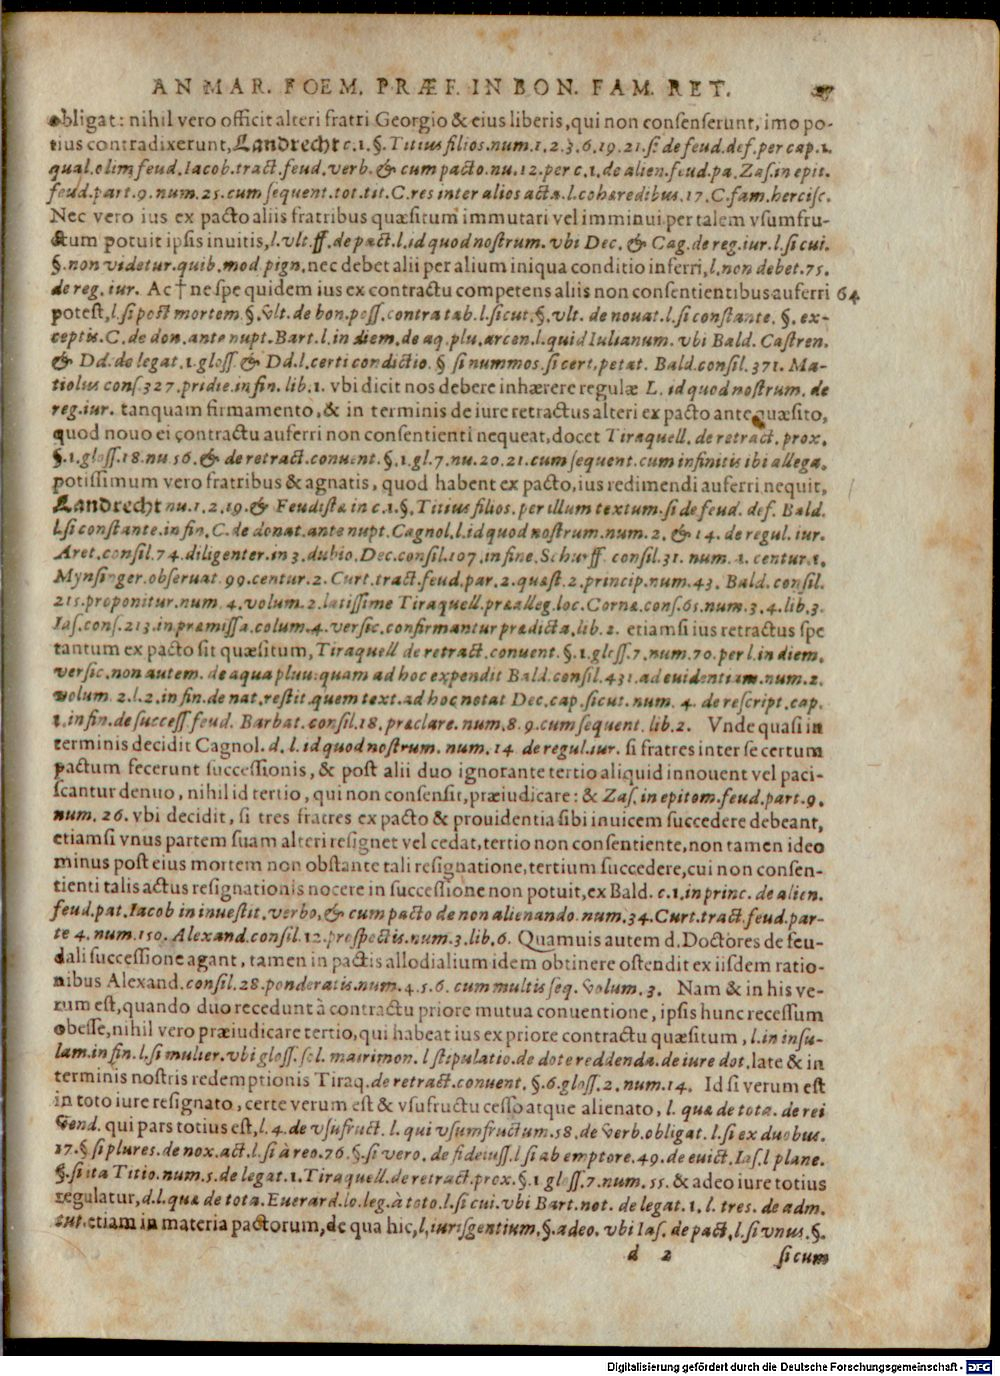 AN MAR. FOEM. PRÆF. IN BON. FAM. RET. 27
obligat: nihil vero officit alteri fratri Georgio & eius liberis, qui non consenserunt, imo po-
tius contradixerunt, Landrecht c.1.§. Titius filios.num.1.2.3.6.19.21. si de feud. def. per cap.1.
qual. olim feud. Iacob. tract. feud. verb. & cum pacto. nu.12. per c.1. de alien. feud. pa. Zas. in epit.
feud. part.9. num.25. cum sequent. tot. tit. C. res inter alios acta. l. cohæredibus.17. C. fam. hercisc.
Nec vero ius ex pacto aliis fratribus quæsitum immutari vel imminui per talem vsumfru-
ctum potuit ipsis inuitis, l. vlt. ff. de pact. l. id quod nostrum. vbi Dec. & Cag. de reg. iur. l. si cui.
§. non videtur. quib. mod. pign. nec debet alii per alium iniqua conditio inferri, l. non debet.75.
de reg. iur. Ac † ne spe quidem ius ex contractu competens aliis non consentientibus auferri 64
potest, l. si post mortem. §. vlt. de bon. poss. contra tab. l. sicut. §. vlt. de nouat. l. si constante. §. ex-
ceptis. C. de don. ante nupt. Bart. l. in diem. de aq. plu. arcen. l. quid Iulianum. vbi Bald. Castren.
& Dd. de legat.1. gloss. & Dd. l. certi condictio. § si nummos. si cert. petat. Bald. consil.371. Ma-
tiolius cons.327. pridie. in fin. lib.1. vbi dicit nos debere inhærere regulæ L. id quod nostrum. de
reg. iur. tanquam firmamento, & in terminis de iure retractus alteri ex pacto ante quæsito,
quod nouo ei contractu auferri non consentienti nequeat, docet Tiraquell. de retract. prox.
§.1. gloss.18. nu 56. & de retract. conuent. §.1. gl.7. nu.20.21. cum sequent. cum infinitis ibi allega.
potissimum vero fratribus & agnatis, quod habent ex pacto, ius redimendi auferri nequit,
Landrecht nu.1.2.19. & Feudistæ in c.1.§. Titius filios. per illum textum. si de feud. def. Bald.
l. si constante. in fin. C. de donat. ante nupt. Cagnol. l. id quod nostrum. num.2. & 14. de regul. iur.
Aret. consil.74. diligenter. in 3. dubio. Dec. consil.107. in fine. Schurff. consil.31. num.2. centur.1.
Mynsinger. obseruat.99. centur.2. Curt. tract. feud. par.2. quæst.2. princip. num.43. Bald. consil.
215. proponitur. num.4. volum.2. latissime Tiraquell. præalleg. loc. Cornæ. cons.65. num.3.4. lib.3.
Ias. cons.213. in præmissa. colum.4. versic. confirmantur prædicta. lib.2. etiamsi ius retractus spe
tantum ex pacto sit quæsitum, Tiraquell de retract. conuent. §.1. gloss.7. num.70. per l. in diem.
versic. non autem. de aqua pluu. quam ad hoc expendit Bald. consil.431. ad euidentiam. num.2.
volum.2. l.2. in fin. de nat. restit. quem text. ad hoc notat Dec. cap. sicut. num.4. de rescript. cap.
1. in fin. de success. feud. Barbat. consil.18. præclare. num.8.9. cum sequent. lib.2. Vnde quasi in
terminis decidit Cagnol. d. l. id quod nostrum. num.14. de regul. iur. si fratres inter se certum
pactum fecerunt successionis, & post alii duo ignorante tertio aliquid innouent vel paci-
scantur denuo, nihil id tertio, qui non consensit, præiudicare: & Zas. in epitom. feud. part.9.
num.26. vbi decidit, si tres fratres ex pacto & prouidentia sibi inuicem succedere debeant,
etiamsi vnus partem suam alteri resignet vel cedat, tertio non consentiente, non tamen ideo
minus post eius mortem non obstante tali resignatione, tertium succedere, cui non consen-
tienti talis actus resignationis nocere in successione non potuit, ex Bald. c.1. in princ. de alien.
feud. pat. Iacob in inuestit. verbo, & cum pacto de non alienando. num.34. Curt. tract. feud. par-
te 4. num.150. Alexand. consil.12. prospectis. num.3. lib.6. Quamuis autem d. Doctores de feu-
dali successione agant, tamen in pactis allodialium idem obtinere ostendit ex iisdem ratio-
nibus Alexand. consil.28. ponderatis. num.4.5.6. cum multis seq. volum.3. Nam & in his ve-
rum est, quando duo recedunt à contractu priore mutua conuentione, ipsis hunc recessum
obesse, nihil vero præiudicare tertio, qui habeat ius ex priore contractu quæsitum, l. in insu-
lam. in fin. l. si mulier. vbi gloss. sol. matrimon. l stipulatio. de dote reddenda. de iure dot. late & in
terminis nostris redemptionis Tiraq. de retract. conuent. §.6. gloss.2. num.14. Id si verum est
in toto iure resignato, certe verum est & vsufructu cesso atque alienato, l. quæ de tota. de rei
vend. qui pars totius est, l.4. de vsufruct. l. qui vsumfructum.58. de verb. obligat. l. si ex duobus.
17. § si plures. de nox. act. l. si à reo.76. §. si vero. de fideiuss. l si ab emptore.49. de euict. Ias. l plane.
§. si ita Titio. num.5. de legat.1. Tiraquell. de retract. prox. §.1 gloss.7. num.55. & adeo iure totius
regulatur, d. l. quæ de tota. Euerard. lo. leg. à toto. l. si cui. vbi Bart. not. de legat.1. l. tres. de adm.
tut. etiam in materia pactorum, de qua hic, l, iurisgentium, §. adeo. vbi Ias. de pact, l. si vnus. §.
d 2 si cum
Digitalisierung gefördert durch die Deutsche Forschungsgemeinschaft - DFG